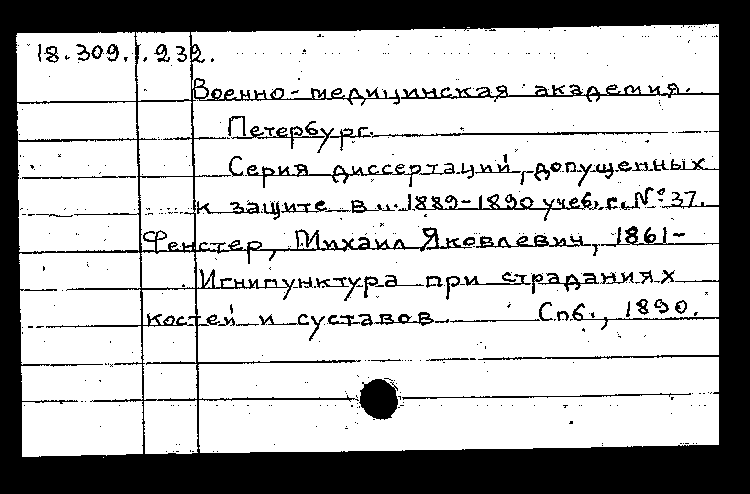 18.309.1.232.
Военно-медицинская академия.
Петербург.
Серия диссертаций, допущенных
к защите в ... 1889-1890 учеб. г. № 37.
Фенстер, Михаил Яковлевич, 1861-
Игнипунктура при страданиях
костей и суставов. Спб., 1890.